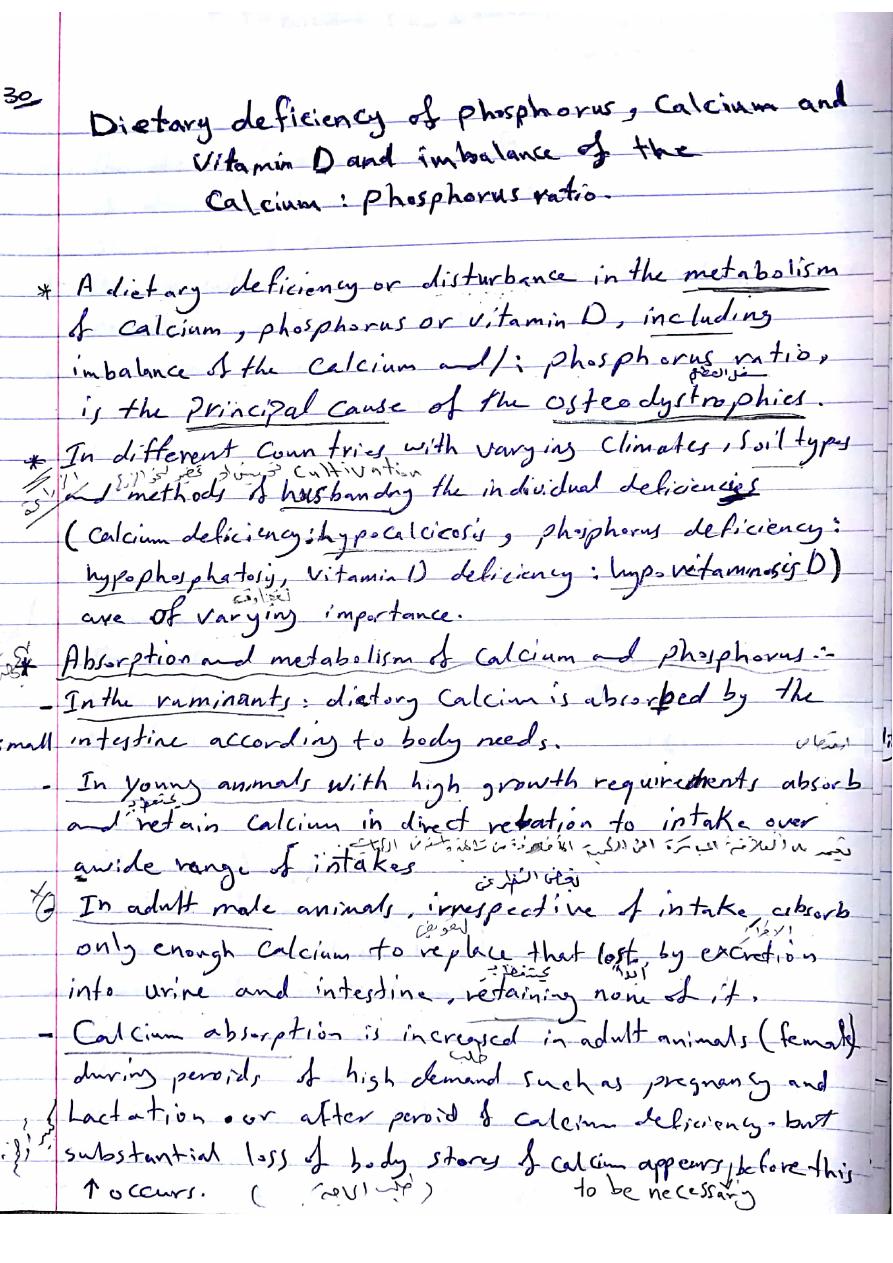 30
Dietary deficiency of phosphorus, Calcium and
Vitamin D and imbalance of the
Calcium : phosphorus ratio.
* A dietary deficiency or disturbance in the metabolism
of calcium, phosphorus or vitamin D, including
imbalance of the Calcium and/: phosphorus ratio,
is the principal cause of the osteodystrophies.
* In different Countries with varying Climates, Soil types
Cultivation
and methods of husbandry the individual deficiencies
(Calcium deficiency: hypocalcicosis, phosphorus deficiency:
hypophosphatosis, Vitamin D deficiency : hypovitaminosis D)
are of varying importance.
* Absorption and metabolism of Calcium and phosphorus:-
- In the ruminants : dietary Calcim is absorbed by the
small intestine according to body needs.
امتصاص
- In young animals with high growth requirements absorb
and retain Calcium in direct relation to intake over
a wide range of intakes
بغض النظر عن
In adult male animals, irrespective of intake absorb
only enough Calcium to replace that lost by excretion
into urine and intestine, retaining none of it.
- Calcium absorption is increased in adult animals (female)
طلب
during peroids of high demand such as pregnancy and
Lactation . or after peroid of calcium deficiency. but
substantial loss of body stores of calcium appears, before this
↑ occurs. (طلب الحاجة) to be necessary